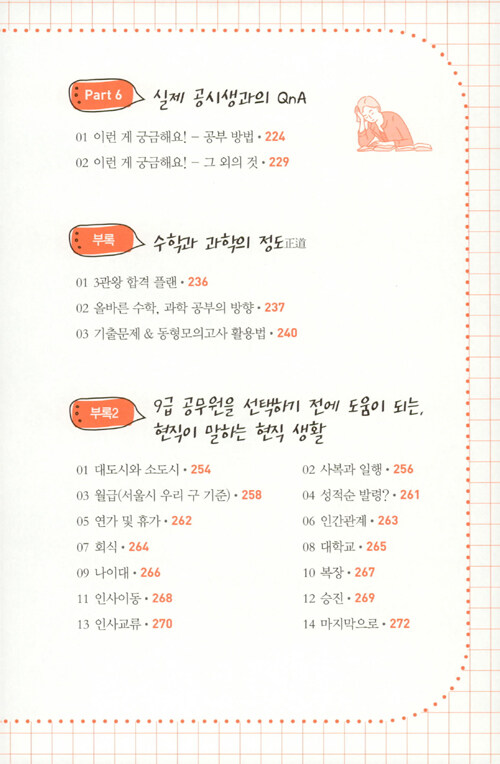 Part 6 실제 공시생과의 QnA
01 이런 게 궁금해요! – 공부 방법 • 224
02 이런 게 궁금해요! – 그 외의 것 • 229
부록 수학과 과학의 정도正道
01 3관왕 합격 플랜 • 236
02 올바른 수학, 과학 공부의 방향 • 237
03 기출문제 & 동형모의고사 활용법 • 240
부록2 9급 공무원을 선택하기 전에 도움이 되는,
현직이 말하는 현직 생활
01 대도시와 소도시 • 254
02 사복과 일행 • 256
03 월급(서울시 우리 구 기준) • 258
04 성적순 발령? • 261
05 연가 및 휴가 • 262
06 인간관계 • 263
07 회식 • 264
08 대학교 • 265
09 나이대 • 266
10 복장 • 267
11 인사이동 • 268
12 승진 • 269
13 인사교류 • 270
14 마지막으로 • 272